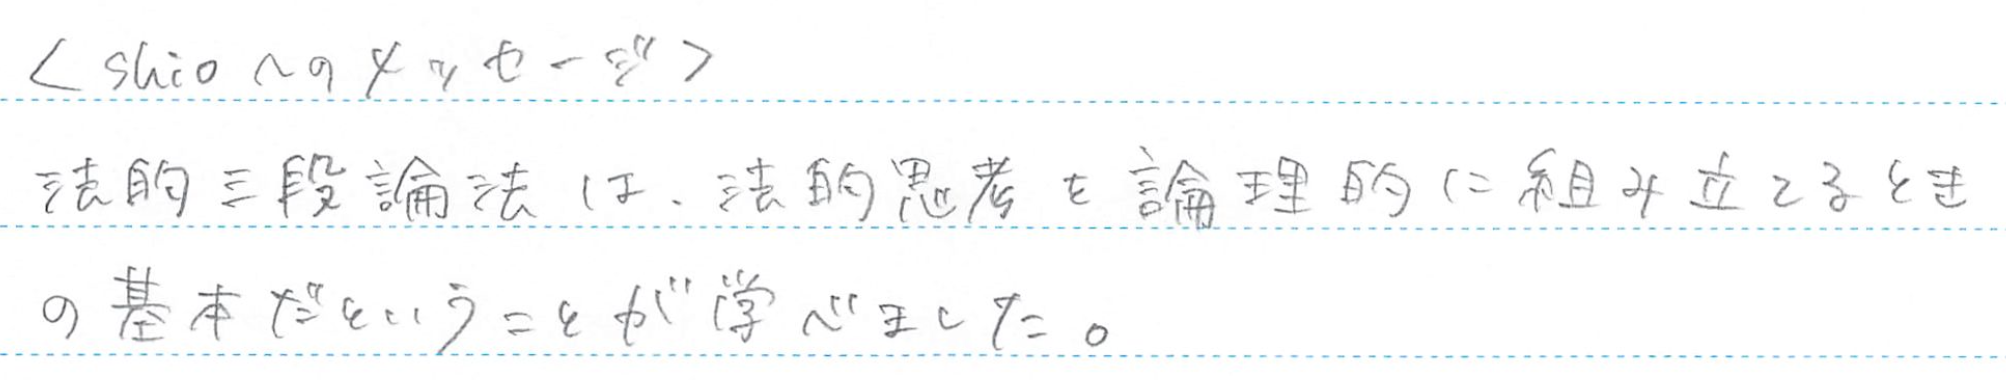 ＜shioへのメッセージ＞
法的三段論法は、法的思考を論理的に組み立てるとき
の基本だということが学べました。